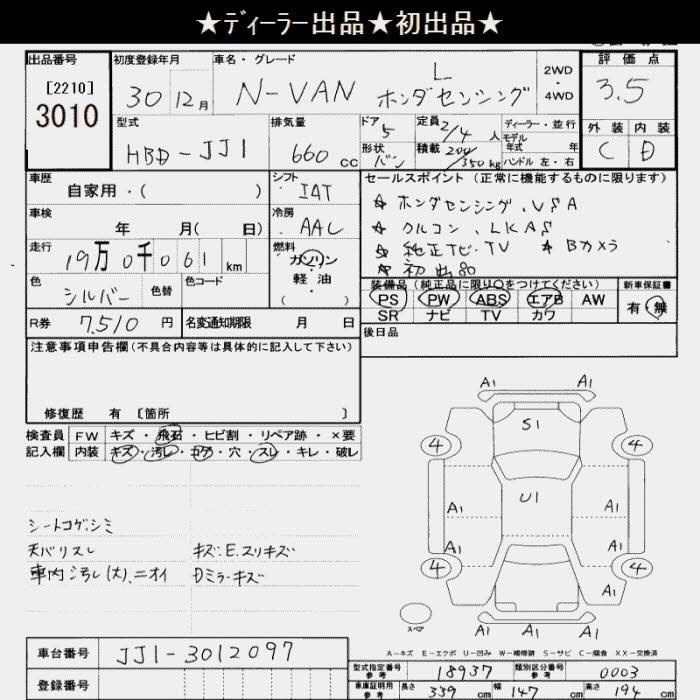 ★ディーラー出品★初出品★
出品番号 初度登録年月 車名・グレード 評価点
[2210] 3010
30 12月 N-VAN L ホンダセンシング 2WD・4WD 3.5
型式 排気量 ドア 定員 ディーラー・並行 外装 内装
HBD-JJ1 660cc 5 2/4人 モデル年式 年 C D
形状 バン 積載 200/350kg ハンドル 左・右
車歴 シフト セールスポイント (正常に機能するものに限ります)
自家用・( ) IAT ★ ホンダセンシング、VSA
車検 冷房 ★ クルコン、LKAS
年 月( 日) AAC ★ 純正ナビ・TV ★ Bカメラ
走行 燃料 ★ 初出品
19万0千061km ガソリン
色 色替 色コード 軽油
シルバー ・( )
装備品 (純正品に限り○をつけてください) 新車保証書
PS PW ABS エアB AW 有・無
SR ナビ TV カワ
R券 7,510円 名変通知期限 月 日
後日品
注意事項申告欄(不具合内容等は具体的に記入して下さい)
修復歴 有 [箇所 ]
検査員 FW キズ・飛石・ヒビ割・リペア跡・×要
記入欄 内装 キズ・汚レ・コゲ・穴・スレ・キレ・破レ
シートコゲ、シミ
天バリスレ キズ・E、スリキズ
車内汚レ(大)、ニオイ Dミラーキズ
A1 A1
S1
4 4
U1
A1 A1
A1 A1
4 4
A1 A1 A1
スペア
A-キズ E-エクボ U-凹み W-補修跡 S-サビ C-腐食 XX-交換済
車台番号 JJ1-3012097
型式指定番号 参考 18937 類別区分番号 参考 0003
登録番号
車庫証明用 参考 長さ 339cm 幅 147cm 高さ 194cm